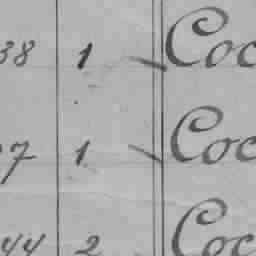 38 1 Coc
7 1 Coc
44 2 Coc